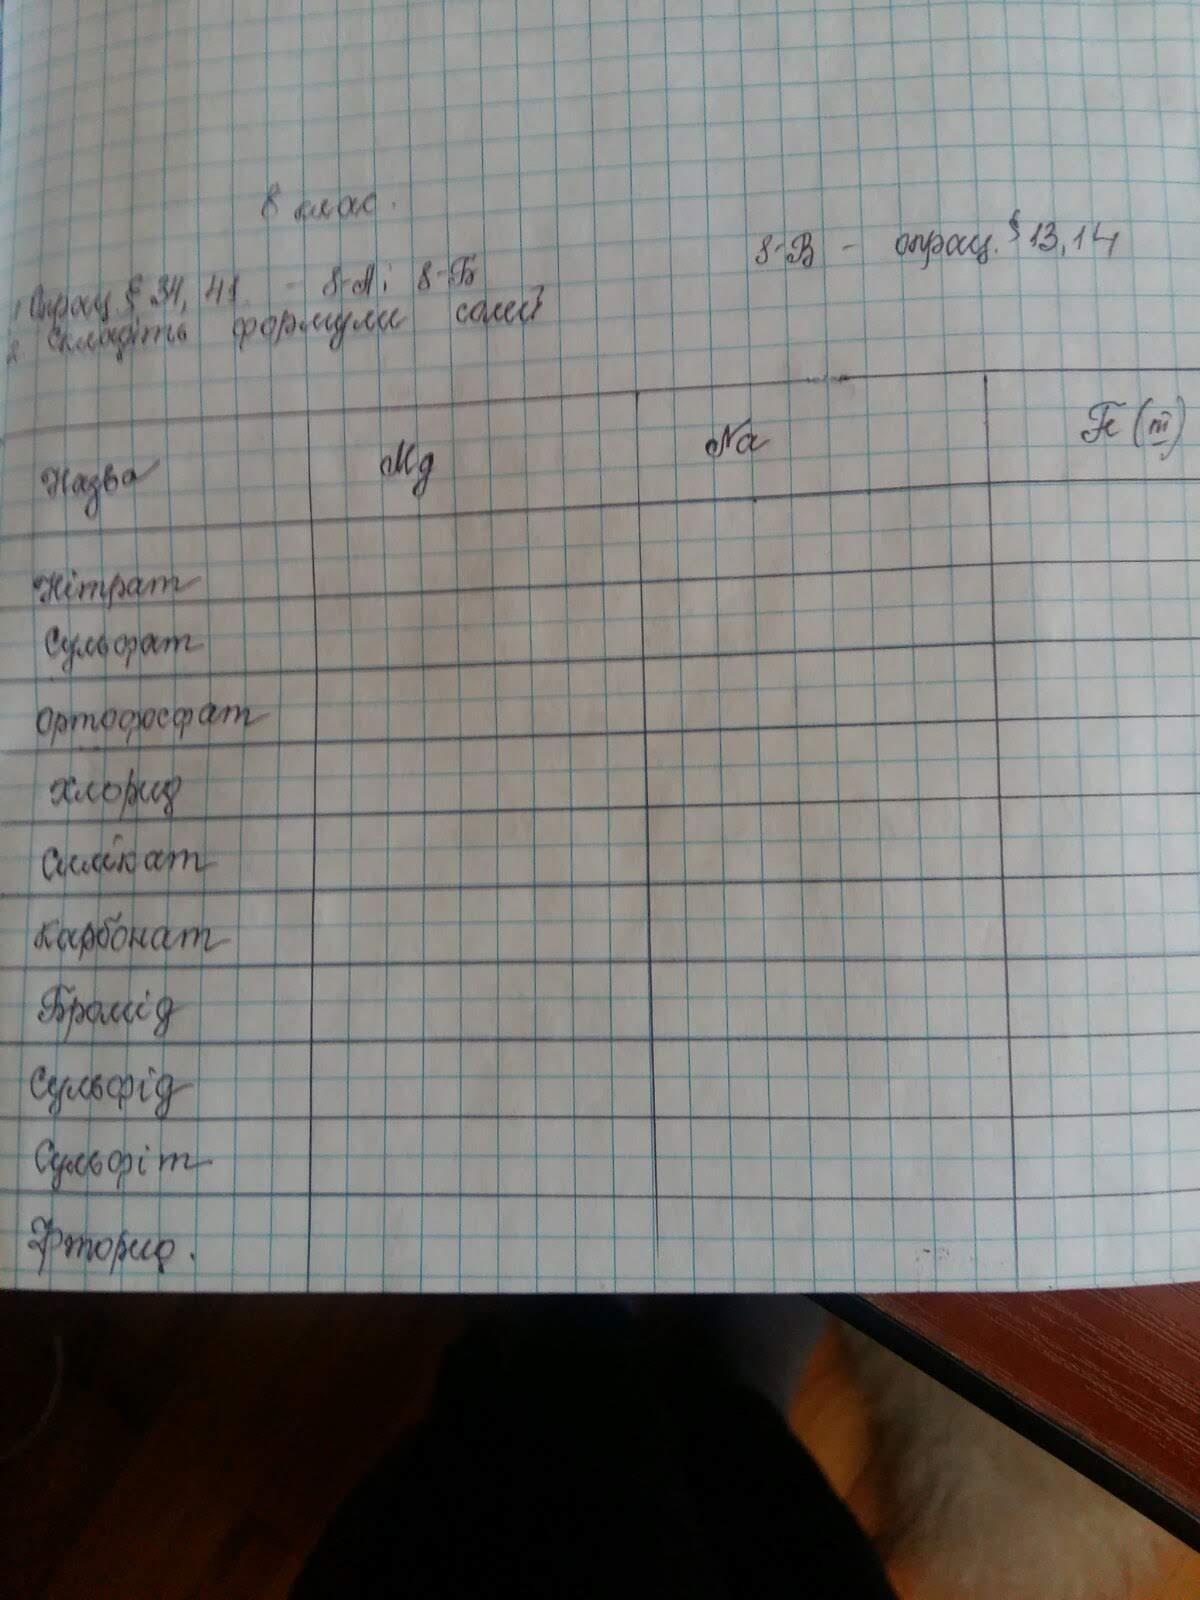 8 клас.
8-В - опрац. § 13, 14
1. Опрац § 34, 41 - 8-А і 8-Б
2. Складіть формули солей
Назва Mg Na Fe (III)
Нітрат
Сульфат
Ортофосфат
Хлорид
Силікат
Карбонат
Бромід
Сульфід
Сульфіт
Фторид.